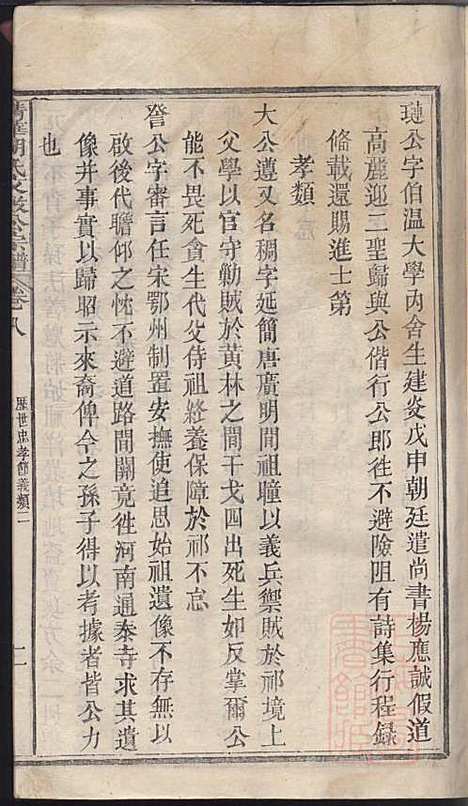 璉公字伯温大學內舍生建炎戊申朝廷遣尚書楊應誠假道
高麗迎二聖歸與公偕行公即徃不避險阻有詩集行程録
脩載還賜進士第
孝類
大公遵又名稠字延簡唐廣明間祖瞳以義兵禦賊於祁境上
父學以官守勦賊於黃林之間干戈四出死生如反掌爾公
能不畏死貪生代父侍祖終養保障於祁不忘
詧公字審言任宋鄂州制置安撫使追思始祖遺像不存無以
啟後代瞻仰之忱不避道路間關竟徃河南通泰寺求其遺
像并事實以歸昭示來裔俾今之孫子得以考據者皆公力
也
清華胡氏文敏公宗譜 卷八
歷世忠孝節義類二
二